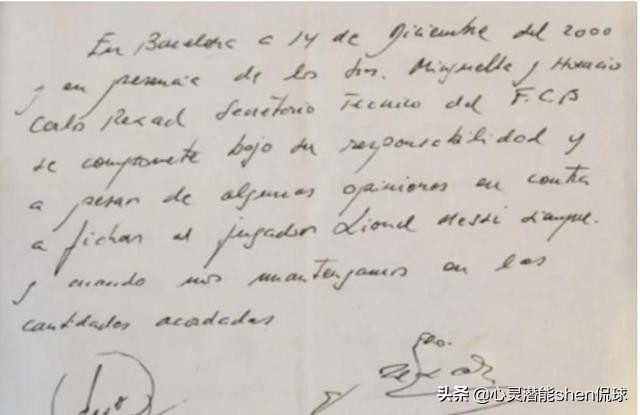 En Barcelona a 14 de Diciembre del 2000
y en presencia de los Srs. Minguella y Horacio
Carlos Rexach Secretario Técnico del F.C.B
se compromete bajo su responsabilidad y
a pesar de algunas opiniones en contra
a fichar al jugador Lionel Messi siempre
y cuando nos mantengamos en las
cantidades acordadas
Fdo.
头条 @心灵潜能shen侃球